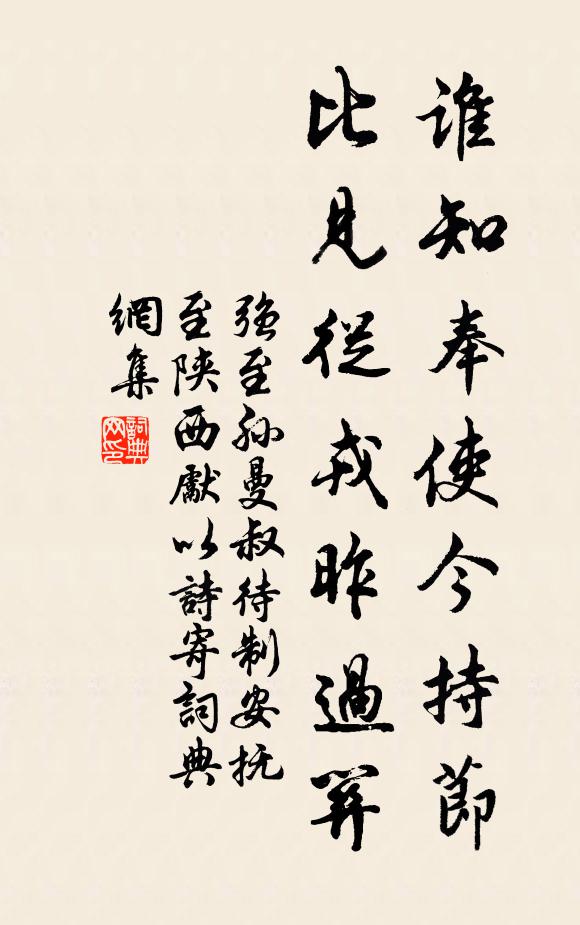 誰知奉使今持節
比見從戎昨過關
强至孫曼叔待制安抚
至陝西獻以詩寄詞典
網集
詞典
网印